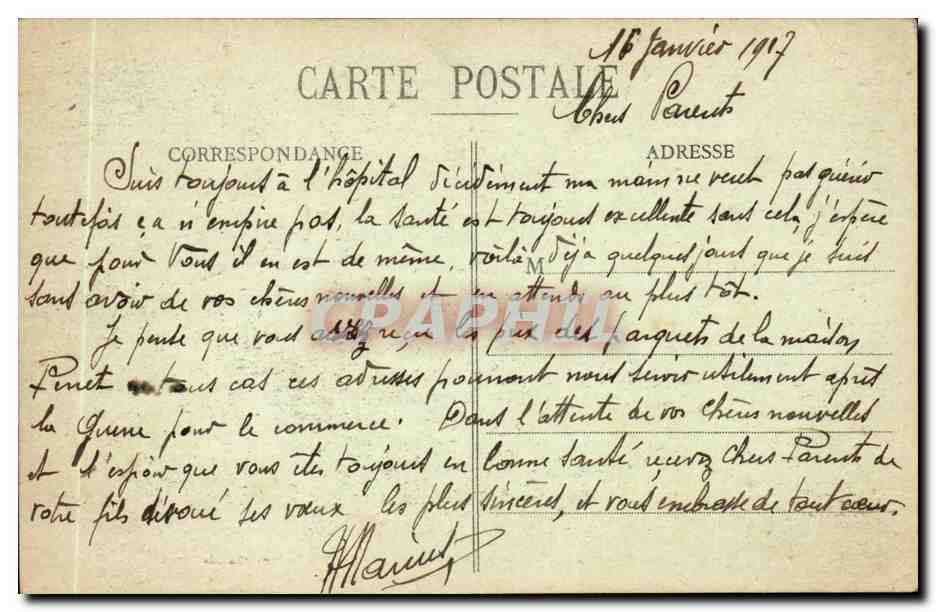 16 Janvier 1917
CARTE POSTALE
Chers Parents
CORRESPONDANCE
ADRESSE
Suis toujours à l'hôpital décidément ma main ne veut pas guérir
toutefois ça n'empire pas, la santé est toujours excellente sans cela, j'espère
que pour Vous il en est de même, voilà déjà quelques jours que je suis
M
sans avoir de vos chères nouvelles et en attends au plus tôt.
Je pense que vous avez reçu les prix des parquets de la maison
CRAPHIL
Perret en tous cas ces adresses pourront nous servir utilement après
la Guerre pour le commerce. Dans l'attente de vos chères nouvelles
et l'espoir que vous êtes toujours en bonne santé, recevez Chers Parents de
votre fils dévoué ses vœux les plus sincères, et vous embrasse de tout cœur.